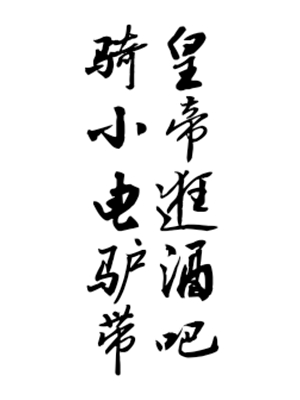 骑小电驴带
皇帝逛酒吧